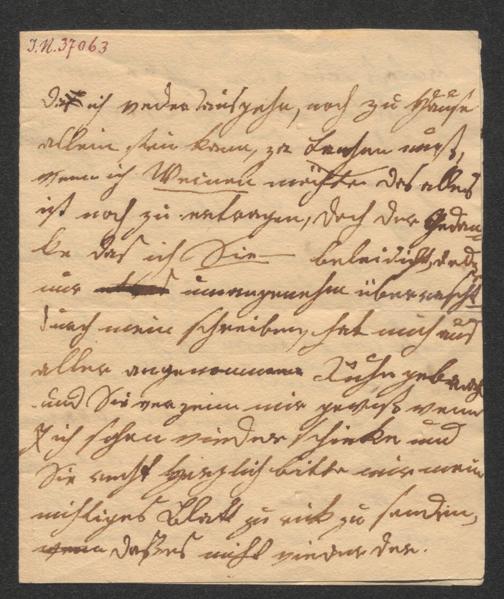 I.N. 37063
daß ich weder ausgehn, noch zu Hause
allein sein kann, zu Lachen muß,
wenn ich Weinen möchte das alles
ist noch zu ertragen, doch der Gedan-
ke das ich Sie beleidigt, oder
nur unangenehm überrascht
durch mein schreiben, hat mich aus
aller angenommenen Ruhe gebracht
und Sie verzeihn mir gewiß wenn
ich schon wieder schicke und
Sie recht herzlich bitte mir mein
nichtiges Blatt zurük zu senden,
daß es nicht wieder der.